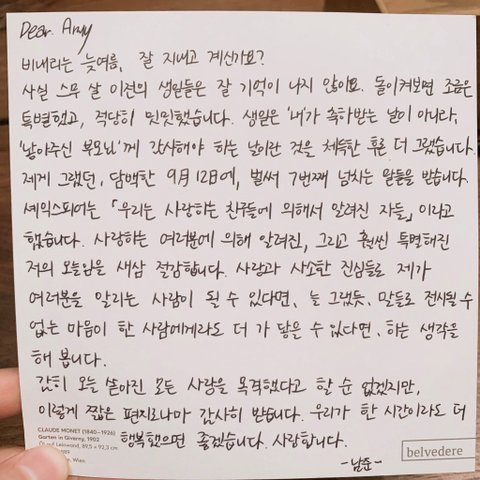 Dear. Army
비내리는 늦여름, 잘 지내고 계신가요?
사실 스무 살 이전의 생일들은 잘 기억이 나지 않아요. 돌이켜보면 조금은
특별했고, 적당히 밋밋했습니다. 생일은 '내'가 축하받는 날이 아니라,
'낳아주신 부모님'께 감사해야 하는 날이란 것을 체득한 후론 더 그랬습니다.
제게 그랬던, 담백한 9월 12일에, 벌써 7번째 넘치는 말들을 받습니다.
셰익스피어는 「우리는 사랑하는 친구들에 의해서 알려진 자들」 이라고
했습니다. 사랑하는 여러분에 의해 알려진, 그리고 훨씬 특별해진
저의 오늘임을 새삼 절감합니다. 사람과 사소한 진심들로 제가
여러분을 알리는 사람이 될 수 있다면, 늘 그랬듯, 말들로 전시될 수
없는 마음이 한 사람에게라도 더 가 닿을 수 있다면, 하는 생각을
해 봅니다.
감히 오늘 쏟아진 모든 사랑을 목격했다고 할 순 없겠지만,
이렇게 짧은 편지로나마 감사히 받습니다. 우리가 한 시간이라도 더
행복했으면 좋겠습니다. 사랑합니다.
-남준-
CLAUDE MONET (1840–1926)
Garten in Giverny, 1902
Öl auf Leinwand, 89,5 × 92,3 cm
Wien
belvedere